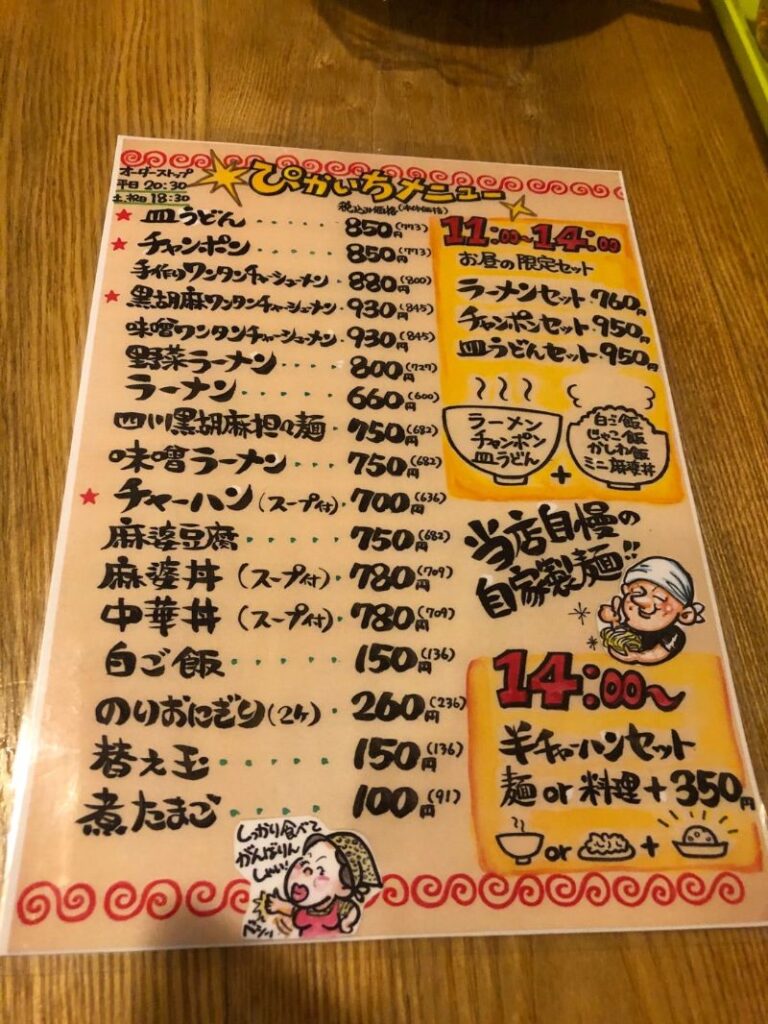 オーダーストップ
平日 20:30
土、祝日 18:30
ぴかいちメニュー
税込み価格(本体価格)
★ 皿うどん ····· 850円(773)
★ チャンポン ····· 850円(773)
手作りワンタンチャーシューメン · 880円(800)
★ 黒胡麻ワンタンチャーシューメン · 930円(845)
味噌ワンタンチャーシューメン · 930円(845)
野菜ラーメン ···· 800円(727)
ラーメン ····· 660円(600)
四川黒胡麻担々麺 · 750円(682)
味噌ラーメン ···· 750円(682)
★ チャーハン(スープ付) · 700円(636)
麻婆豆腐 ····· 750円(682)
麻婆丼(スープ付) · 780円(709)
中華丼(スープ付) · 780円(709)
白ご飯 ····· 150円(136)
のりおにぎり(2ケ) · 260円(236)
替え玉 ····· 150円(136)
煮たまご ····· 100円(91)
しっかり食べて
がんばりん
しゃい!
11:00~14:00
お昼の限定セット
ラーメンセット 760円
チャンポンセット 950円
皿うどんセット 950円
ラーメン
チャンポン
皿うどん
+
白ご飯
じゃこ飯
かしわ飯
ミニ麻婆丼
当店自慢の
自家製麺!!
14:00~
半チャーハンセット
麺 or 料理 + 350円
or +